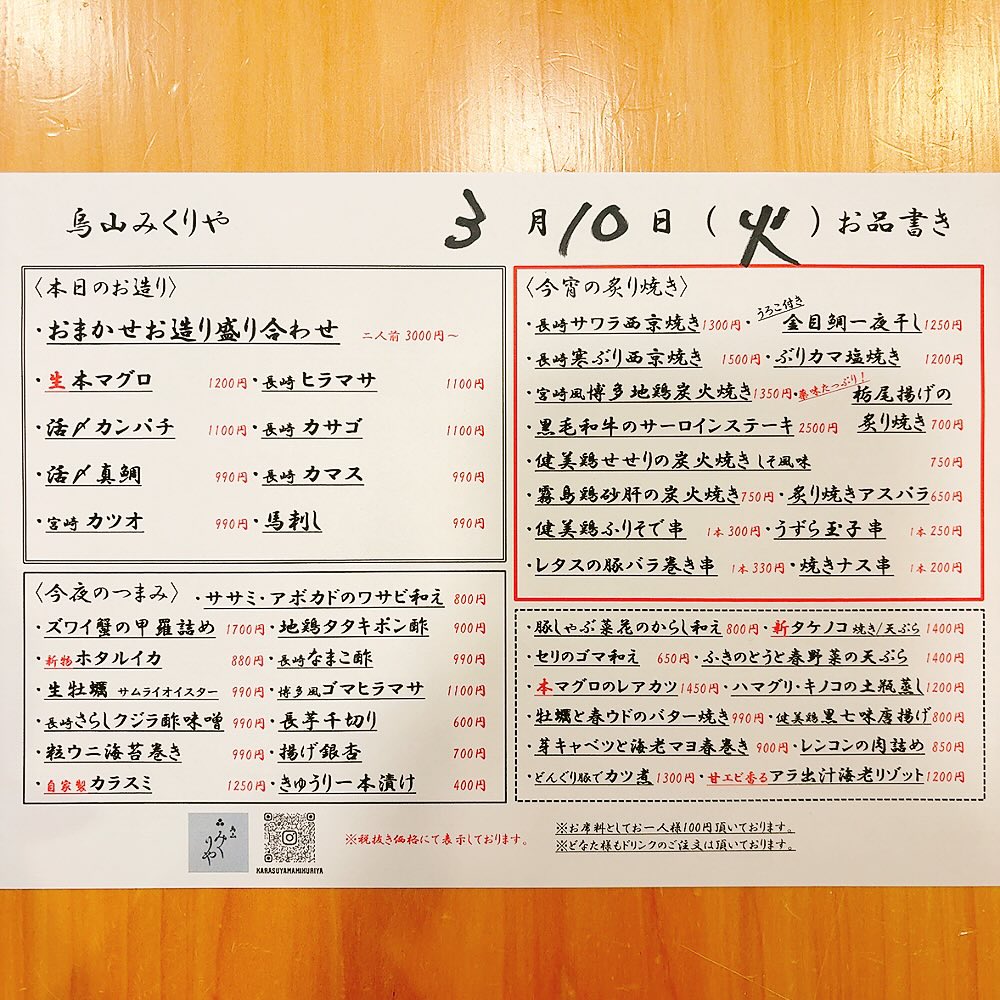 烏山みくりや
3月10日(火)お品書き
〈本日のお造り〉
・おまかせお造り盛り合わせ 二人前 3000円～
・生本マグロ 1200円・長崎 ヒラマサ 1100円
・活〆カンパチ 1100円・長崎 カサゴ 1100円
・活〆真鯛 990円・長崎 カマス 990円
・宮崎 カツオ 990円・馬刺し 990円
〈今夜のつまみ〉・ササミ・アボカドのワサビ和え 800円
・ズワイ蟹の甲羅詰め 1700円・地鶏タタキポン酢 900円
・新物ホタルイカ 880円・長崎なまこ酢 990円
・生牡蠣 サムライオイスター 990円・博多風ゴマヒラマサ 1100円
・長崎さらしクジラ酢味噌 990円・長芋千切り 600円
・粒ウニ海苔巻き 990円・揚げ銀杏 700円
・自家製カラスミ 1250円・きゅうり一本漬け 400円
〈今宵の炙り焼き〉
・長崎サワラ西京焼き1300円・うろこ付き 金目鯛一夜干し1250円
・長崎寒ぶり西京焼き 1500円・ぶりカマ塩焼き 1200円
・宮崎風博多地鶏炭火焼き1350円・薬味たっぷり! 栃尾揚げの
・黒毛和牛のサーロインステーキ 2500円 炙り焼き 700円
・健美鶏せせりの炭火焼き しそ風味 750円
・霧島鶏砂肝の炭火焼き750円・炙り焼きアスパラ650円
・健美鶏ふりそで串 1本300円・うずら玉子串 1本250円
・レタスの豚バラ巻き串 1本330円・焼きナス串 1本200円
・豚しゃぶ菜花のからし和え 800円・新タケノコ 焼き/天ぷら 1400円
・セリのゴマ和え 650円・ふきのとうと春野菜の天ぷら 1400円
・本マグロのレアカツ1450円・ハマグリ・キノコの土瓶蒸し1200円
・牡蠣と春ウドのバター焼き990円・健美鶏黒七味唐揚げ800円
・芽キャベツと海老マヨ春巻き 900円・レンコンの肉詰め 850円
・どんぐり豚でカツ煮 1300円・甘エビ香るアラ出汁海老リゾット1200円
烏山
みくりや
KARASUYAMAMIKURIYA
※税抜き価格にて表示しております。
※お席料としてお一人様100円頂いております。
※どなた様もドリンクのご注文は頂いております。